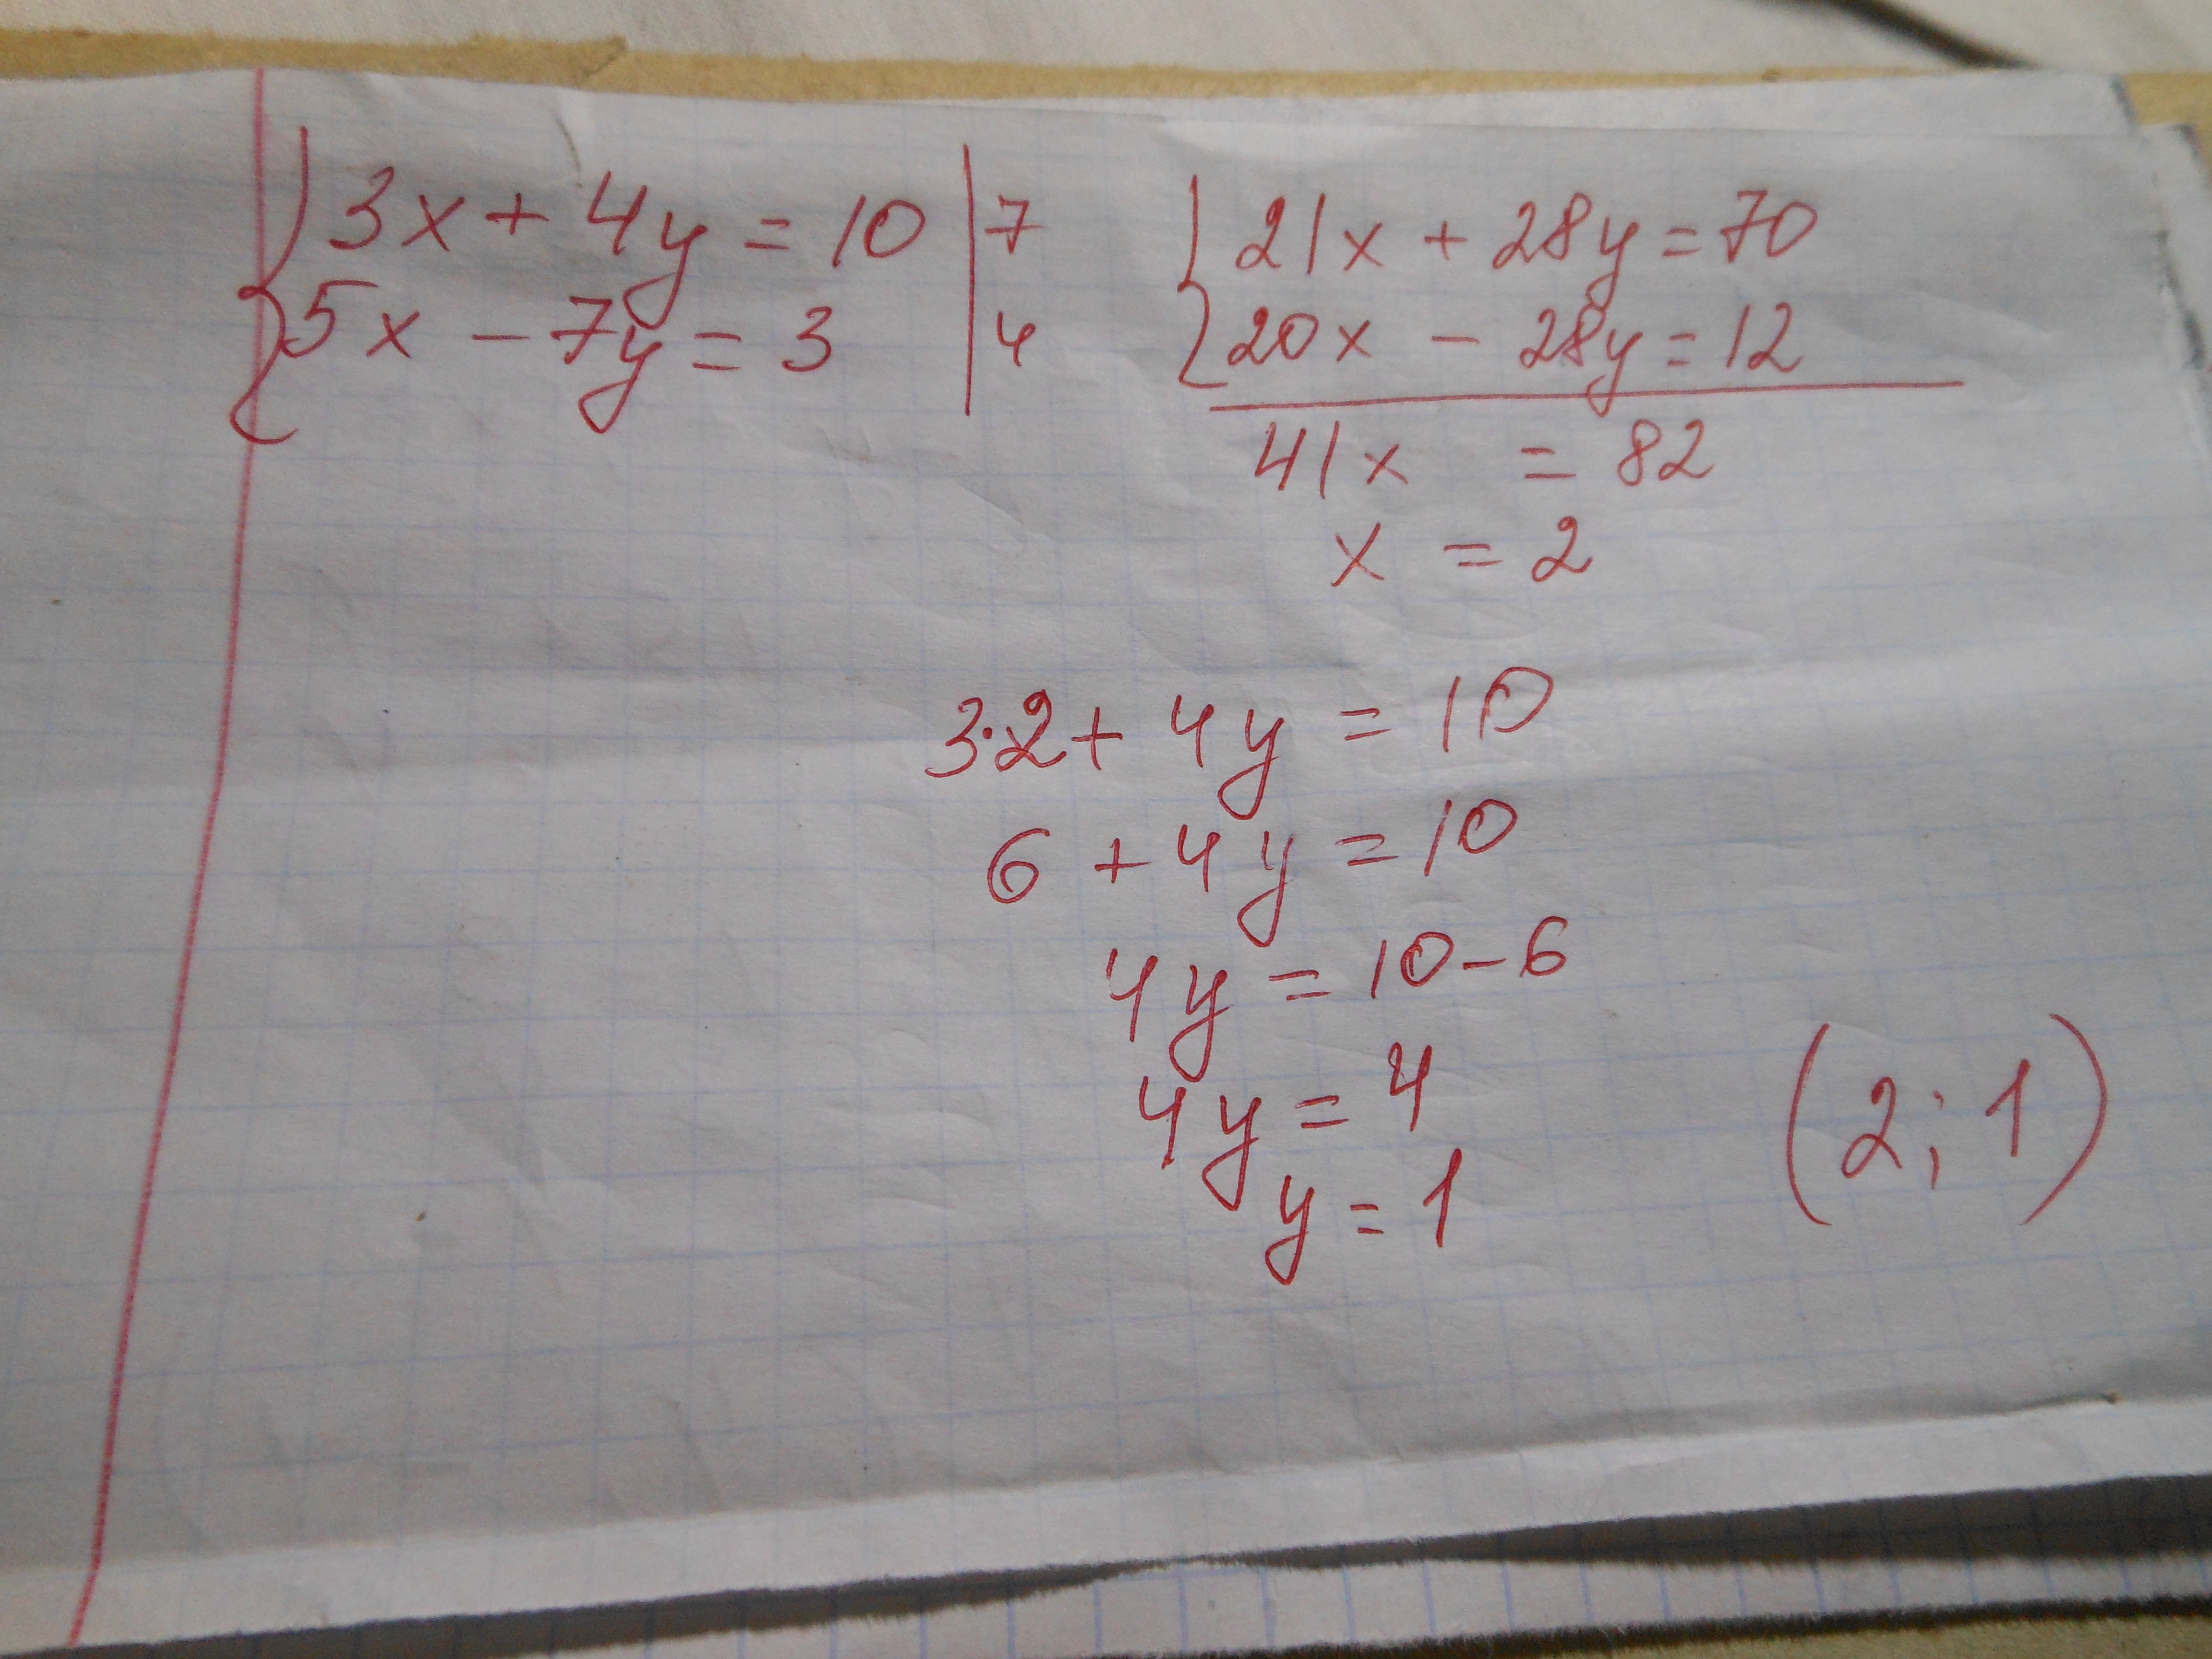 { 3x + 4y = 10 | 7
5x - 7y = 3 | 4
{ 21x + 28y = 70
20x - 28y = 12
41x = 82
x = 2
3·2 + 4y = 10
6 + 4y = 10
4y = 10 - 6
4y = 4
y = 1
(2; 1)